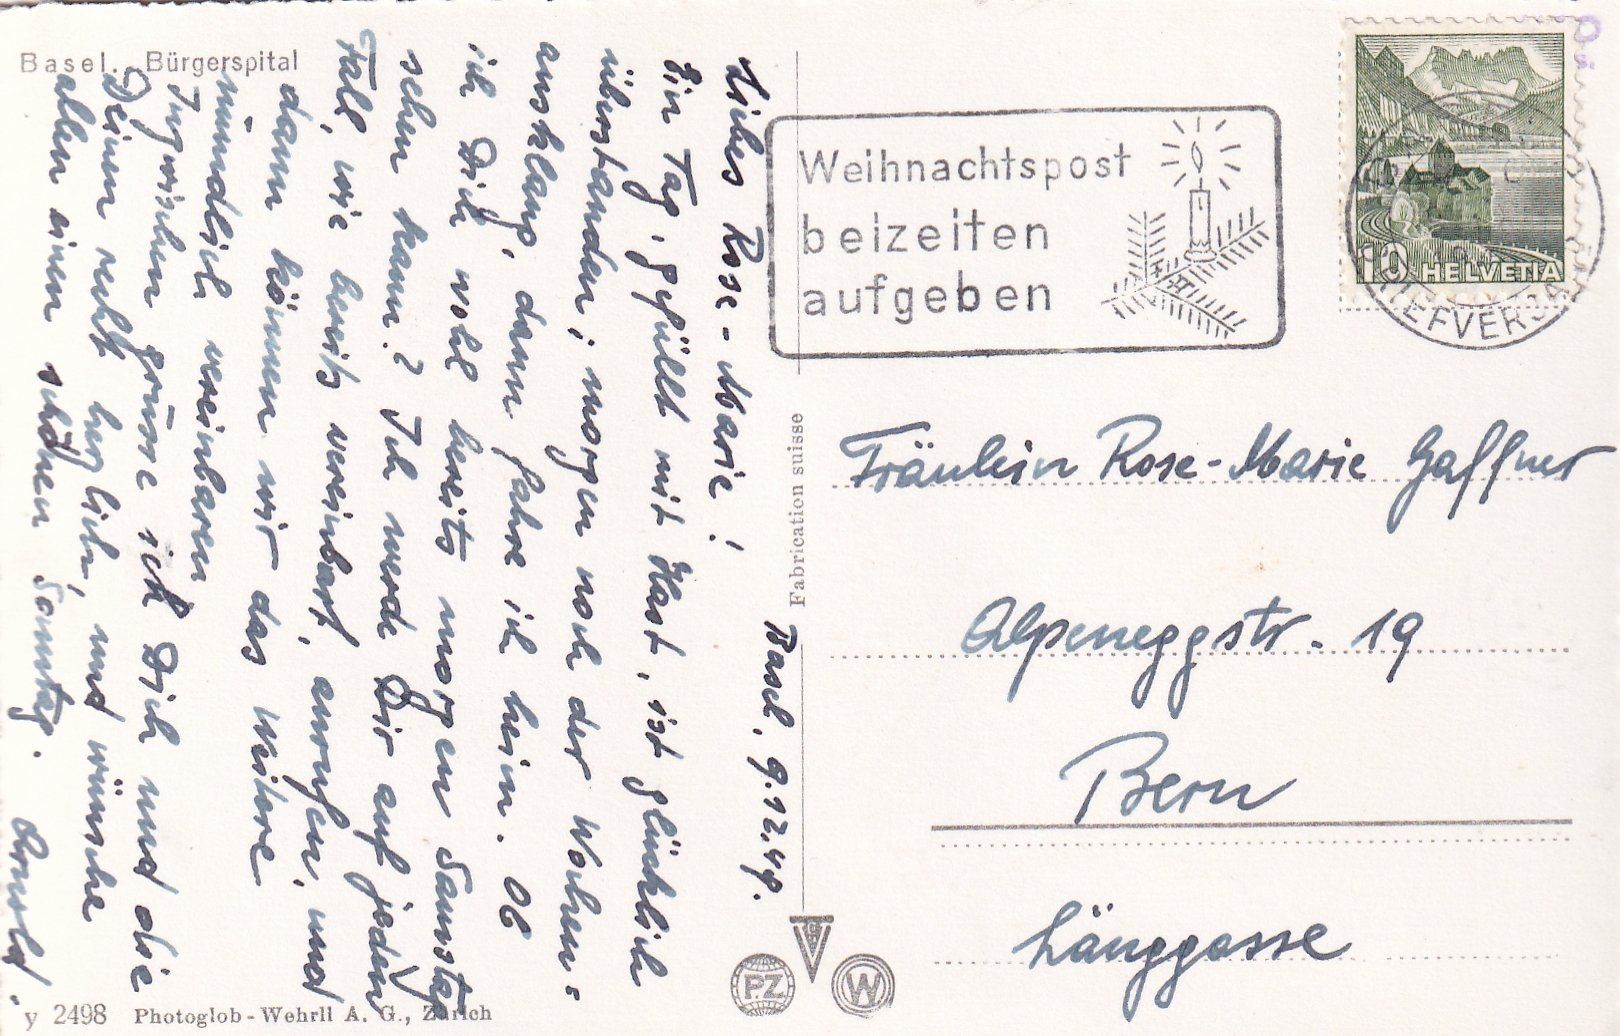 Basel. Bürgerspital
Basel, 9.12.49.
Liebes Rose-Marie!
Ein Tag, gefüllt mit Hast, ist glücklich
überstanden; morgen noch der Wochen=
ausklang, dann fahre ich heim. Ob
ich Dich wohl bereits morgen Samstag
sehen kann? Ich werde Dir auf jeden
Fall, wie bereits vereinbart, anrufen, und
dann können wir das Weitere
mündlich vereinbaren
Inzwischen grüsse ich Dich und die
Deinen recht herzlich, und wünsche
allen einen schönen Sonntag.
Arnold.
y 2498 Photoglob-Wehrli A. G., Zürich
Fabrication suisse
PZ
W
Weihnachtspost
beizeiten
aufgeben
10 HELVETIA
BRIEFVERSAND
Fräulein Rose-Marie Gaffner
Alpeneggstr. 19
Bern
Länggasse